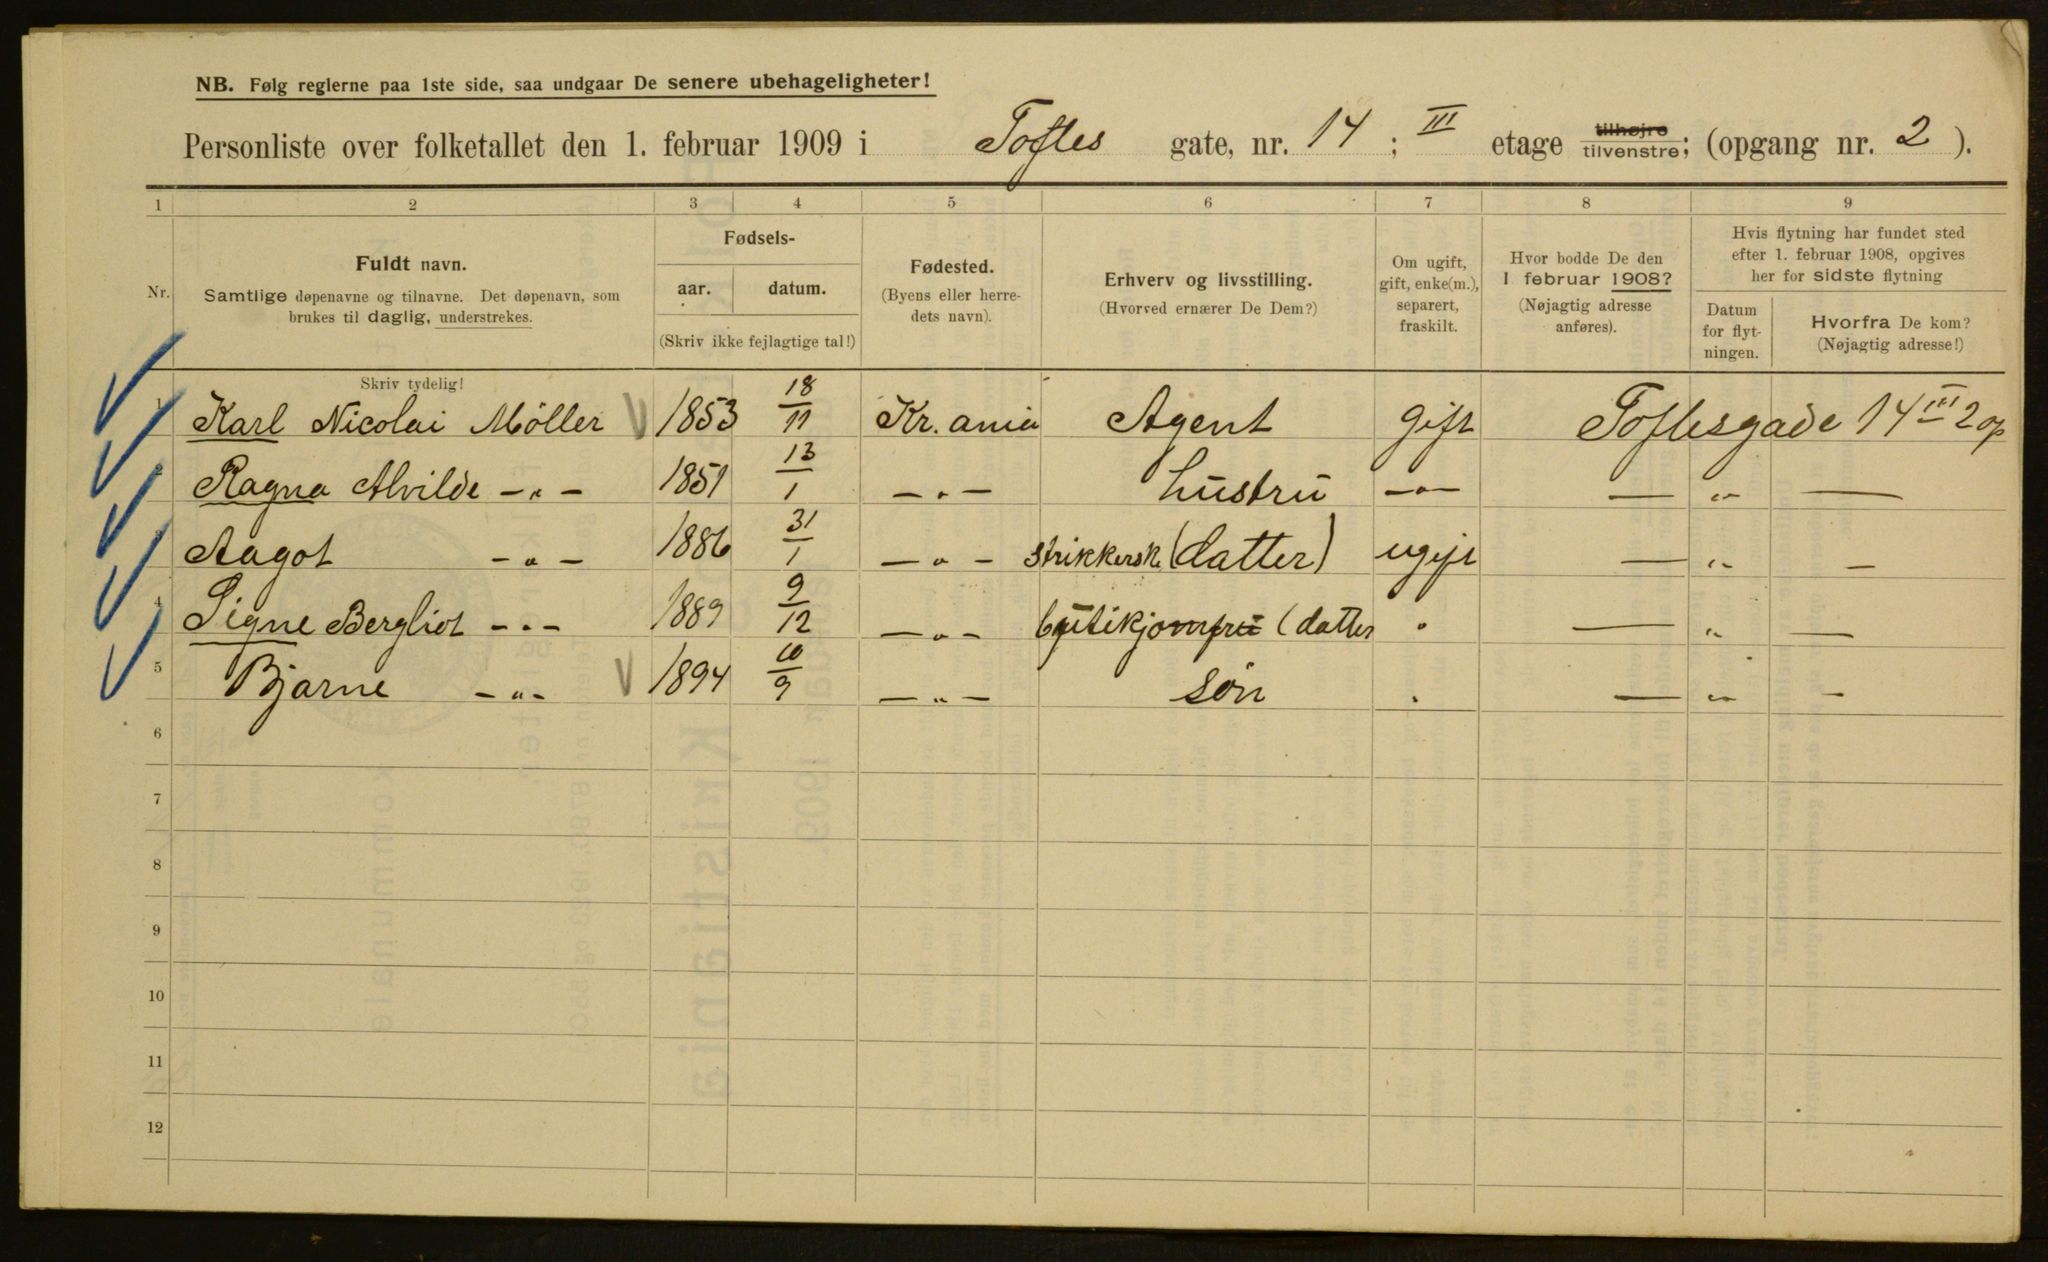 NB. Følg reglerne paa 1ste side, saa undgaar De senere ubehageligheter!
Personliste over folketallet den 1. februar 1909 i Toftes gate, nr. 14 ; III etage tilhøjre tilvenstre; (opgang nr. 2 ).
1 2 3 4 5 6 7 8 9
Nr.
Fuldt navn.
Samtlige døpenavne og tilnavne. Det døpenavn, som
brukes til daglig, understrekes.
Fødsels-
aar. datum.
(Skriv ikke fejlagtige tal!)
Fødested.
(Byens eller herre-
dets navn).
Erhverv og livsstilling.
(Hvorved ernærer De Dem?)
Om ugift,
gift, enke(m.),
separert,
fraskilt.
Hvor bodde De den
1 februar 1908?
(Nøjagtig adresse
anføres).
Hvis flytning har fundet sted
efter 1. februar 1908, opgives
her for sidste flytning
Datum
for flyt-
ningen.
Hvorfra De kom?
(Nøjagtig adresse!)
Skriv tydelig!
1 Karl Nicolai Möller 1853 18/11 Kr.ania Agent gift Toftesgade 14 III 2 op
2 Ragna Alvilde -"- 1851 13/1 -"- Hustru -"- - " -
3 Aagot -"- 1886 31/1 -"- strikkersk. (datter) ugift - " -
4 Signe Bergliot -"- 1889 9/12 -"- butikjomfru (datter " - " -
5 Bjarne -"- 1894 10/9 -"- søn " - " -
6
7
8
9
10
11
12